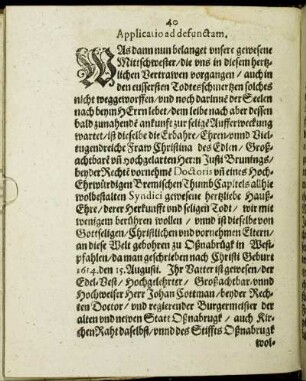 40
Applicatio ad defunctam.
WAs dann nun belanget vnsere gewesene
Mittschwester / die vns in diesem hertz-
lichen Vertrawen vorgangen / auch in
den eussersten Todtesschmertzen solches
nicht weggeworffen / vnd noch darinne der Seelen
nach beym HErrn lebet / dem leibe nach aber dessen
bald zunahende ankunfft zur selige Aufferweckung
wartet / ist dieselbe die Erbahre / Ehren / vnnd Viel-
tugendreiche Fraw Christina des Edlen / Groß-
achtbarē vn̄ Hochgelarten Herrn Justi Brunings /
beyder Rechtē vornehmē Doctoris vn̄ eines Hoch-
Ehrwürdigen Bremischen ThumbCapitels allhie
wolbestalten Syndici gewesene hertzliebe Hauß-
Ehre / derer Herkunfft vnd seligen Todt / wir mit
wenigem berühren wollen / vnnd ist dieselbe von
Gottseligen / Christlichen vnd vornehmen Eltern /
an diese Welt gebohren zu Oßnabrügk in West-
pfahlen / da man geschrieben nach Christi Geburt
1614. den 15. Augusti. Ihr Vatter ist gewesen / der
Edel-Vest / Hochgelehrter / Großachtbar- vnnd
Hochweiser Herr Johan Cottman / beyder Rech-
ten Doctor / vnd regierender Burgermeister der
alten vnd newen Statt Oßnabrugk / auch Kir-
chen Raht daselbst / vnnd des Stiffts Oßnabrugk
wol-